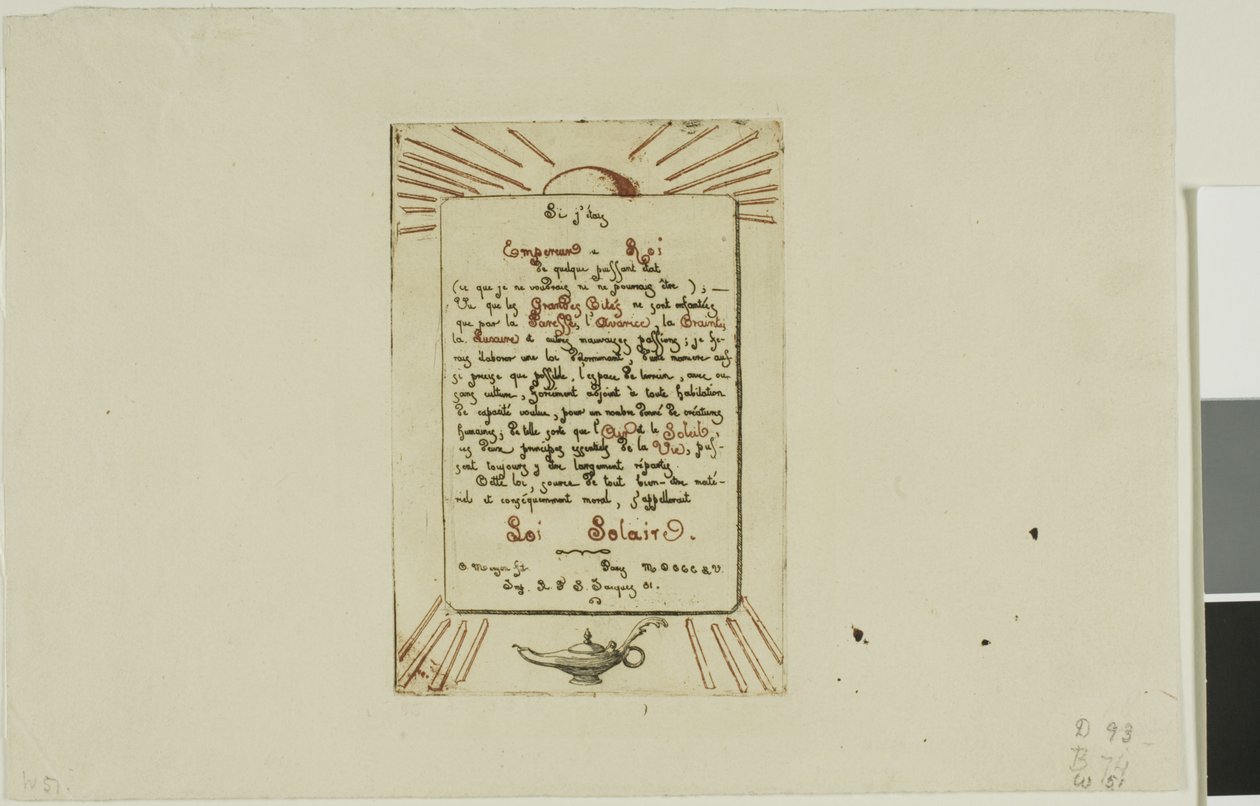 Si j'étais
Empereur u Roi
de quelque puissant état
(ce que je ne voudrais ne ne pourrais être ) ; —
Vu que les Grandes Cités ne sont enfantées
que par la Paresse, l'Avarice, la Crainte,
la Luxure et autres mauvaises passions ; je fe-
rais élaborer une loi déterminant, d'une manière aus-
si précise que possible, l'espace de terrain, avec ou
sans culture, forcément adjoint à toute habitation
de capacité voulue, pour un nombre donné de créatures
humaines ; de telle sorte que l'Air et le Soleil,
ces deux principes essentiels de la Vie, puis-
sent toujours y être largement répartis.
Cette loi, source de tout bien-être maté-
riel et conséquemment moral, s'appellerait
Loi Solaire.
C. Meryon ft. Paris MDCCCLV.
Imp. R. F. S. Jacques 81.
D 93
B 74
W 51
W 51.